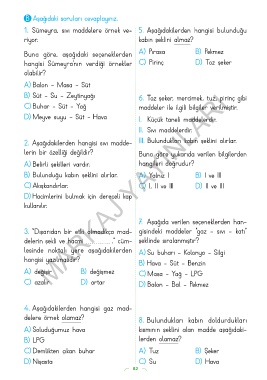 B Aşağıdaki soruları cevaplayınız.
1. Sümeyra, sıvı maddelere örnek ve-
riyor.
Buna göre, aşağıdaki seçeneklerden
hangisi Sümeyra'nın verdiği örnekler
olabilir?
A) Balon - Masa - Süt
B) Süt - Su - Zeytinyağı
C) Buhar - Süt - Yağ
D) Meyve suyu - Süt - Hava
2. Aşağıdakilerden hangisi sıvı madde-
lerin bir özelliği değildir?
A) Belirli şekilleri vardır.
B) Bulunduğu kabın şeklini alırlar.
C) Akışkandırlar.
D) Hacimlerini bulmak için dereceli kap
kullanılır.
3. "Dışarıdan bir etki olmadıkça mad-
delerin şekli ve hacmi ............." cüm-
lesinde noktalı yere aşağıdakilerden
hangisi yazılmalıdır?
A) değişir B) değişmez
C) azalır D) artar
4. Aşağıdakilerden hangisi gaz mad-
delere örnek olamaz?
A) Soluduğumuz hava
B) LPG
C) Demlikten çıkan buhar
D) Nişasta
5. Aşağıdakilerden hangisi bulunduğu
kabın şeklini almaz?
A) Pırasa B) Pekmez
C) Pirinç D) Toz şeker
6. Toz şeker, mercimek, tuz, pirinç gibi
maddeler ile ilgili bilgiler verilmiştir.
I. Küçük taneli maddelerdir.
II. Sıvı maddelerdir.
III. Bulundukları kabın şeklini alırlar.
Buna göre yukarıda verilen bilgilerden
hangileri doğrudur?
A) Yalnız I B) I ve III
C) I, II ve III D) II ve III
7. Aşağıda verilen seçeneklerden han-
gisindeki maddeler "gaz - sıvı - katı"
şeklinde sıralanmıştır?
A) Su buharı - Kolonya - Silgi
B) Hava - Süt - Benzin
C) Masa - Yağ - LPG
D) Balon - Bal - Pekmez
8. Bulundukları kabın doldurdukları
kısmının şeklini alan madde aşağıdaki-
lerden olamaz?
A) Tuz B) Şeker
C) Su D) Hava
82